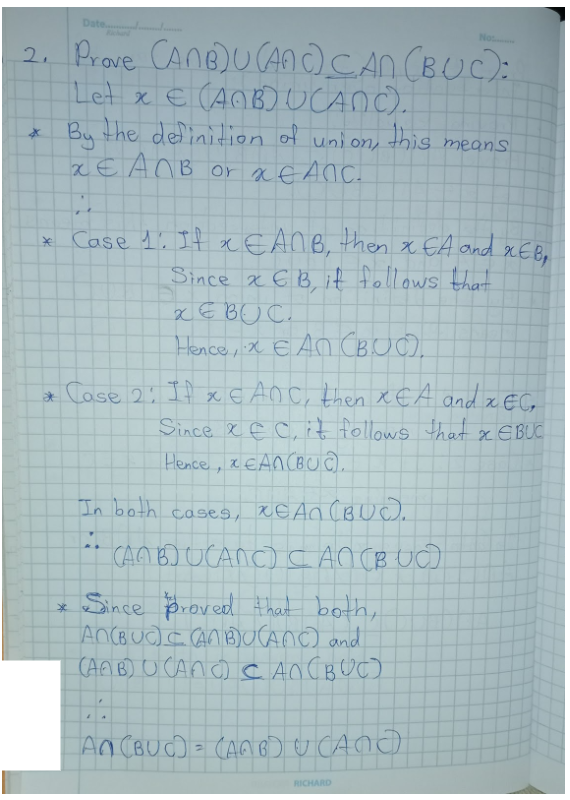 Date
Richard
No:
2. Prove (A∩B)∪(A∩C)⊆A∩(B∪C):
Let x ∈ (A∩B)∪(A∩C).
* By the definition of union, this means
x ∈ A∩B or x ∈ A∩C.
∴
* Case 1: If x ∈ A∩B, then x ∈ A and x ∈ B,
Since x ∈ B, it follows that
x ∈ B∪C.
Hence, x ∈ A∩(B∪C).
* Case 2: If x ∈ A∩C, then x ∈ A and x ∈ C,
Since x ∈ C, it follows that x ∈ B∪C
Hence, x ∈ A∩(B∪C).
In both cases, x ∈ A∩(B∪C).
∴ (A∩B)∪(A∩C) ⊆ A∩(B∪C)
* Since proved that both,
A∩(B∪C) ⊆ (A∩B)∪(A∩C) and
(A∩B)∪(A∩C) ⊆ A∩(B∪C)
∴
A∩(B∪C) = (A∩B)∪(A∩C)
RICHARD